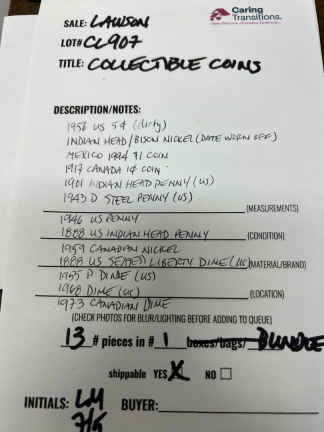 SALE: LAWSON
Caring Transitions
LOT# CL907
TITLE: COLLECTIBLE COINS
DESCRIPTION/NOTES:
1956 US 5¢ (dirty)
INDIAN HEAD/BISON NICKEL (DATE WORN OFF)
MEXICO 1984 $1 COIN
1917 CANADA 1¢ COIN
1901 INDIAN HEAD PENNY (US)
1943 D STEEL PENNY (US)
(MEASUREMENTS)
1946 US PENNY
1888 US INDIAN HEAD PENNY (CONDITION)
1959 CANADIAN NICKEL
1888 US SEATED LIBERTY DIME (UC) (MATERIAL/BRAND)
1955 D DIME (US)
1968 DIME (UC) (LOCATION)
1973 CANADIAN DIME
(CHECK PHOTOS FOR BLUR/LIGHTING BEFORE ADDING TO QUEUE)
13 # pieces in # 1 boxes/bags/ BUNDLE
shippable YES X NO
INITIALS: LM BUYER:
7/5